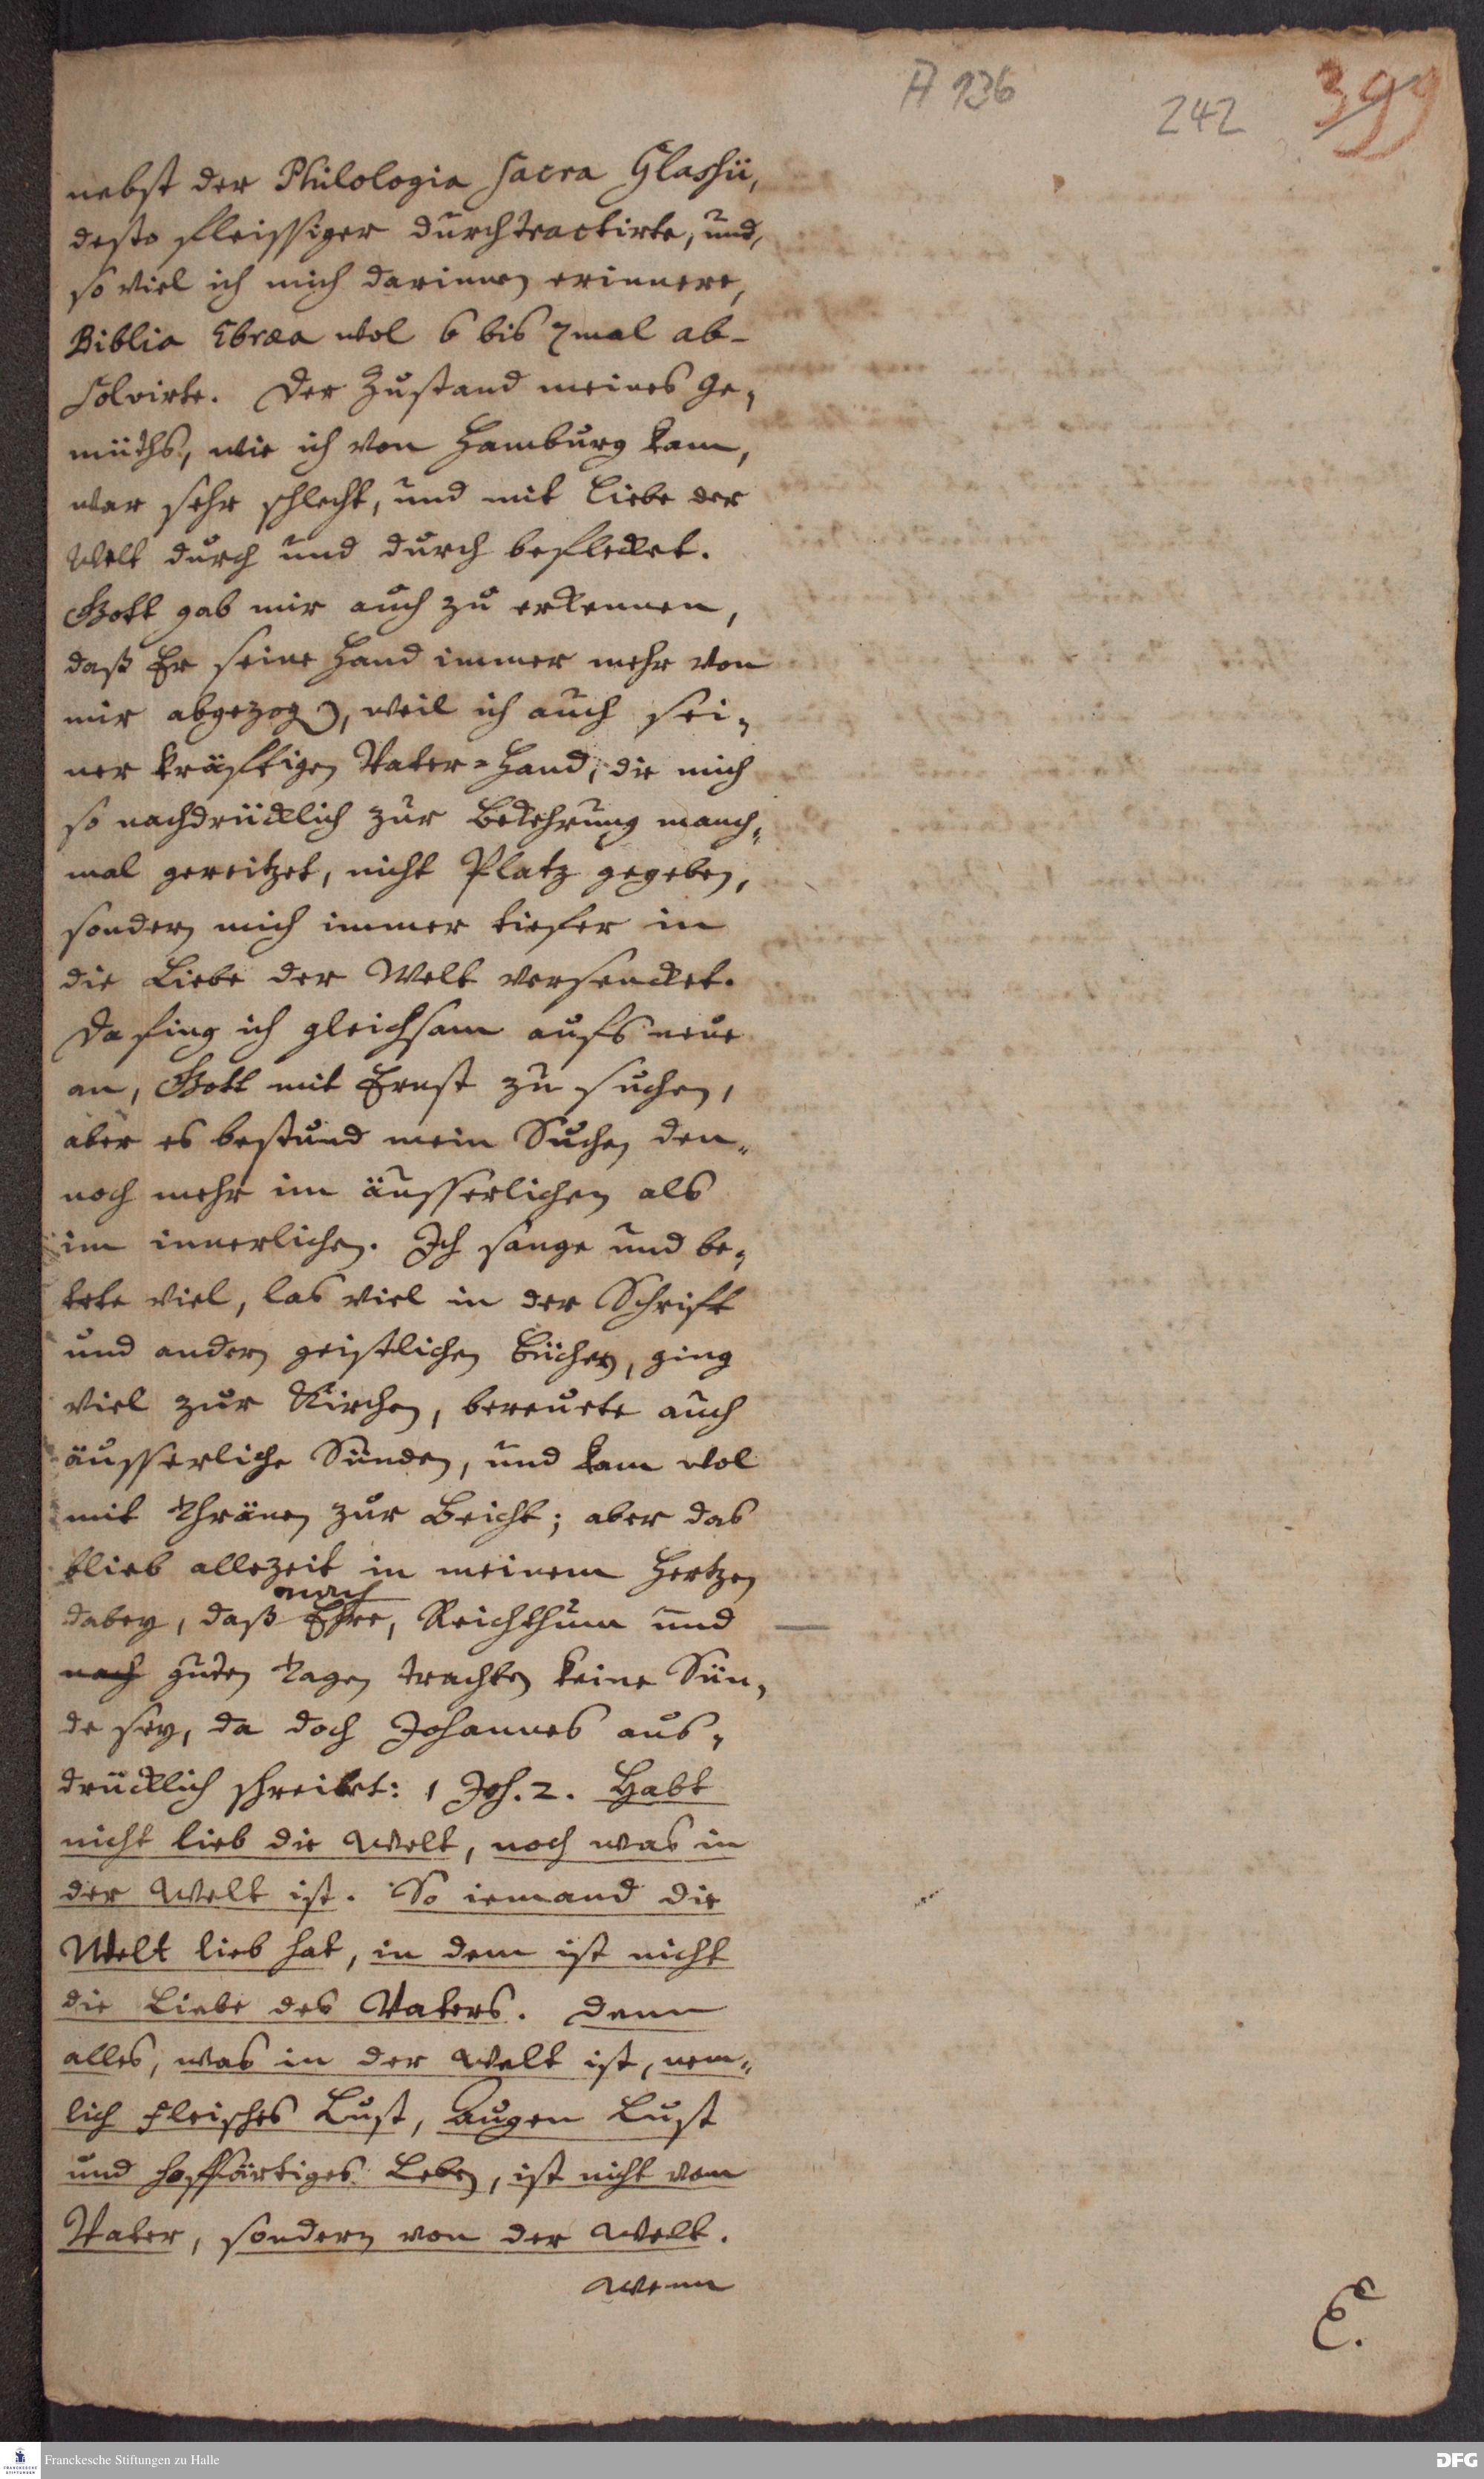 A 136
242
399
nebst der Philologia sacra Glassii,
desto fleissiger durchtractirte, und,
so viel ich mich darinnen erinnere,
Biblia Ebræa wol 6 bis 7mal ab-
solvirte. Der Zustand meines Ge-
müths, wie ich von Hamburg kam,
war sehr schlecht, und mit Liebe der
Welt durch und durch beflecket.
Gott gab mir auch zu erkennen,
daß Er seine Hand immer mehr von
mir abgezogen, weil ich auch sei-
ner kräftigen Vater-Hand, die mich
so nachdrücklich zur Bekehrung manch-
mal gereitzet, nicht Platz gegeben,
sondern mich immer tiefer in
die Liebe der Welt versencket.
Da fing ich gleichsam aufs neue
an, Gott mit Ernst zu suchen,
aber es bestund mein Suchen den-
noch mehr im äusserlichen als
im innerlichen. Ich sange und be-
tete viel, las viel in der Schrift
und andern geistlichen Büchern, ging
viel zur Kirchen, bereuete auch
äusserliche Sünden, und kam wol
mit Thränen zur Beicht; aber das
blieb allezeit in meinem Hertzen
nach
dabey, daß Ehre, Reichthum und
nach guten Tagen trachten keine Sün-
de sey, da doch Johannes aus-
drücklich schreibet: 1 Joh. 2. Habt
nicht lieb die Welt, noch was in
der Welt ist. So iemand die
Welt lieb hat, in dem ist nicht
die Liebe des Vaters. Denn
alles, was in der Welt ist, nem-
lich Fleisches Lust, Augen Lust
und hoffärtiges Leben, ist nicht vom
Vater, sondern von der Welt.
Wenn
E.
Franckesche Stiftungen zu Halle
DFG